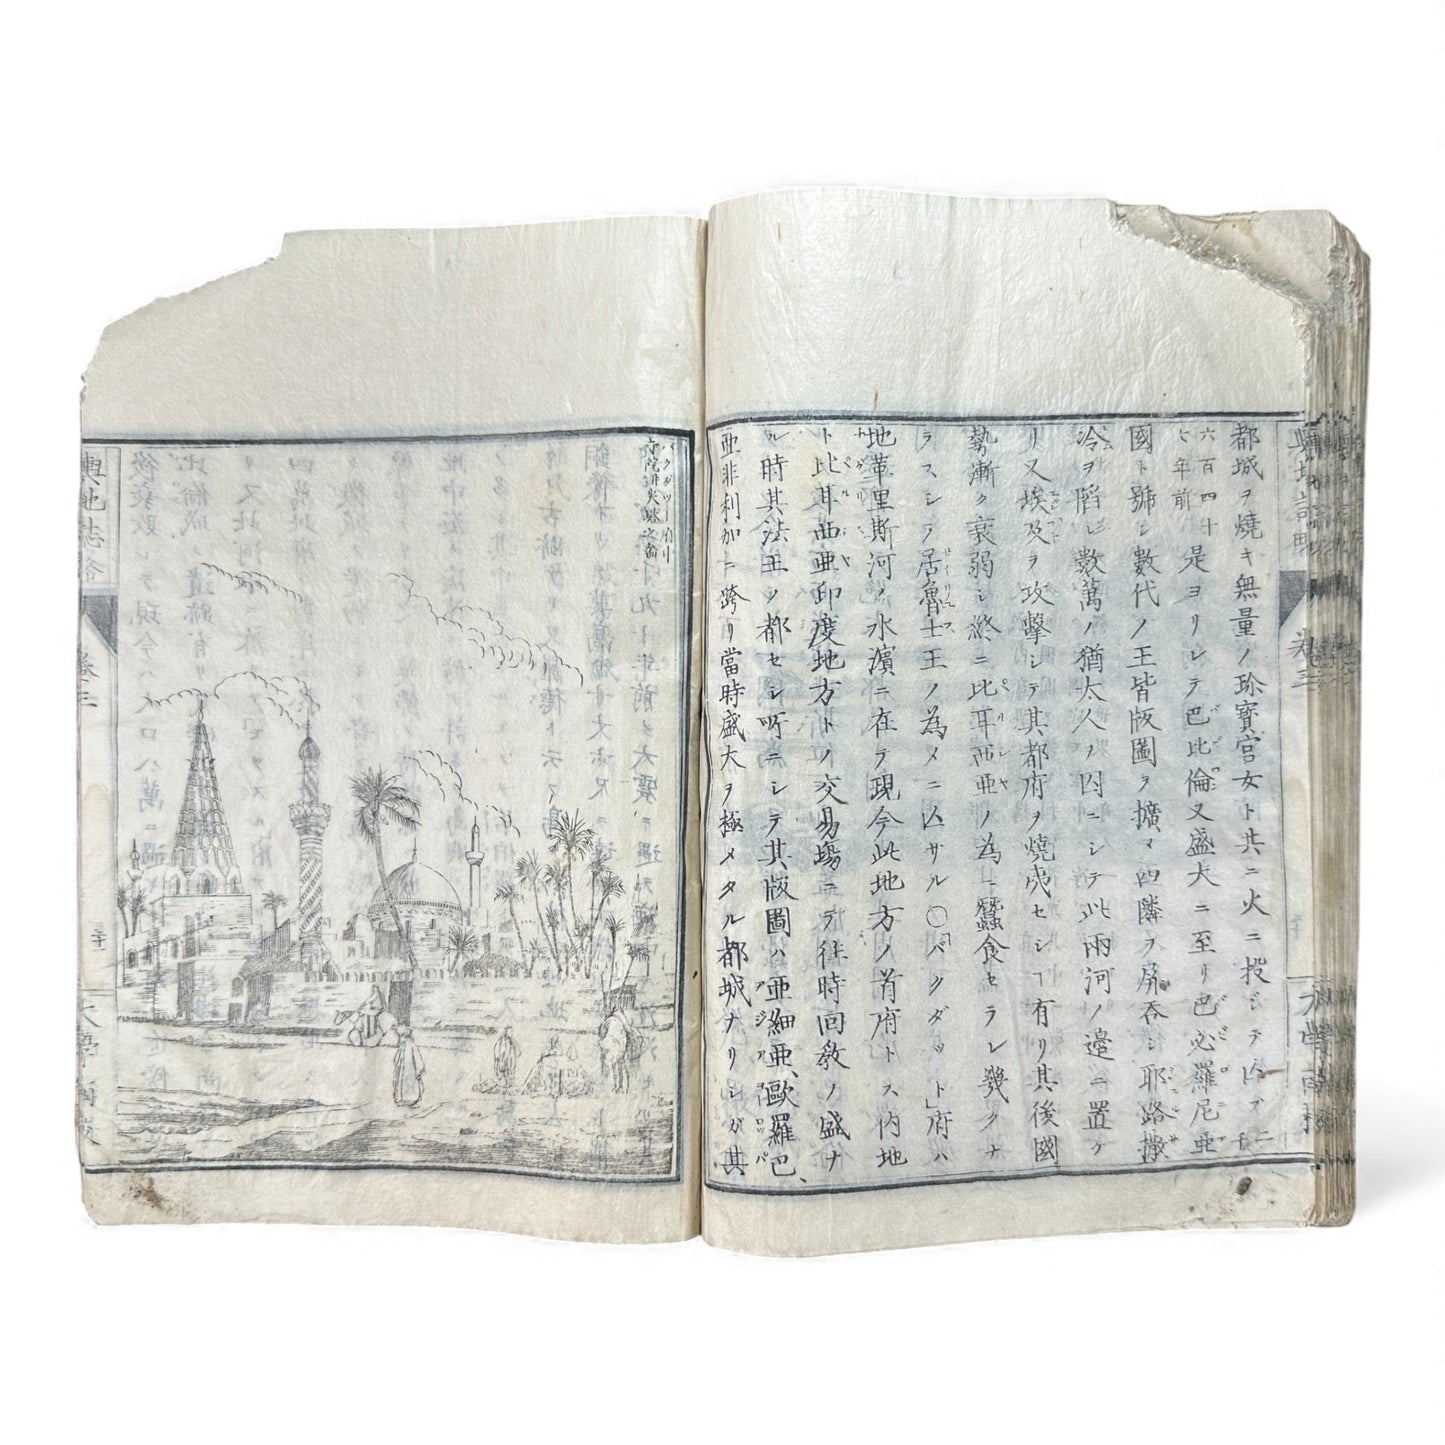 都城ヲ燒キ無量ノ珍寳宮女ト其ニ火ニ投ジテ
六百四十
七年前
是ヨリシテ巴比倫又盛大ニ至リ巴必羅尼亜
國ト號シ數代ノ王皆版圖ヲ擴メ四隣ヲ屏呑シ耶路撒
冷ヲ陷レ數萬ノ猶太人ヲ囚ニシテ此兩河ノ邉ニ置ケ
リ又埃及ヲ攻撃シテ其都府ヲ燒夷セシヿ有リ其後國
勢漸ク衰弱シ終ニ比耳西亜ノ為ニ蠶食セラレ幾クナ
ラスシテ居魯士王ノ為メニ亡サル〇「バクダット」府ハ
地革里斯河ノ水濵ニ在テ現今此地方ノ首府トス内地
ト比耳西亜印度地方トノ交易塲ニテ往時回教ノ盛ナ
ル時其法王ノ都セシ所ニシテ其版圖ハ亜細亜、歐羅巴、
亜非利加ニ跨リ當時盛大ヲ極メタル都城ナリシガ其
輿地誌略
卷三
大學南校
バクダッド府ノ
寺院
之圖
輿地誌畧
卷三
大學南校